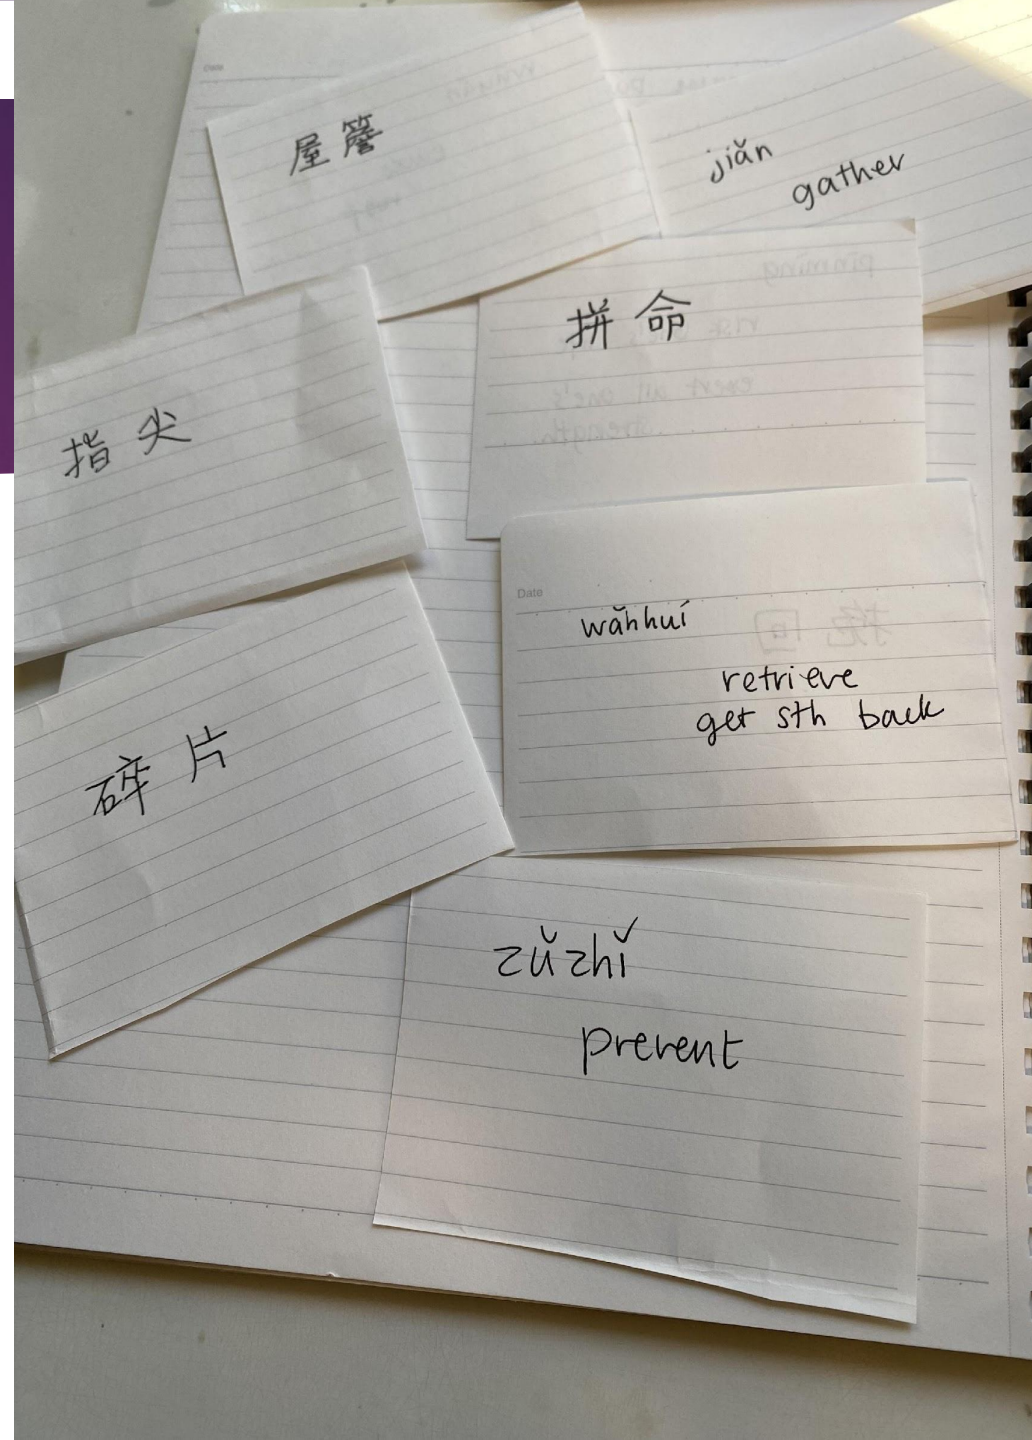 Date
屋簷
jiǎn
gather
拼命
指尖
Date
wǎnhuí
retrieve
get sth back
碎片
zǔzhǐ
prevent